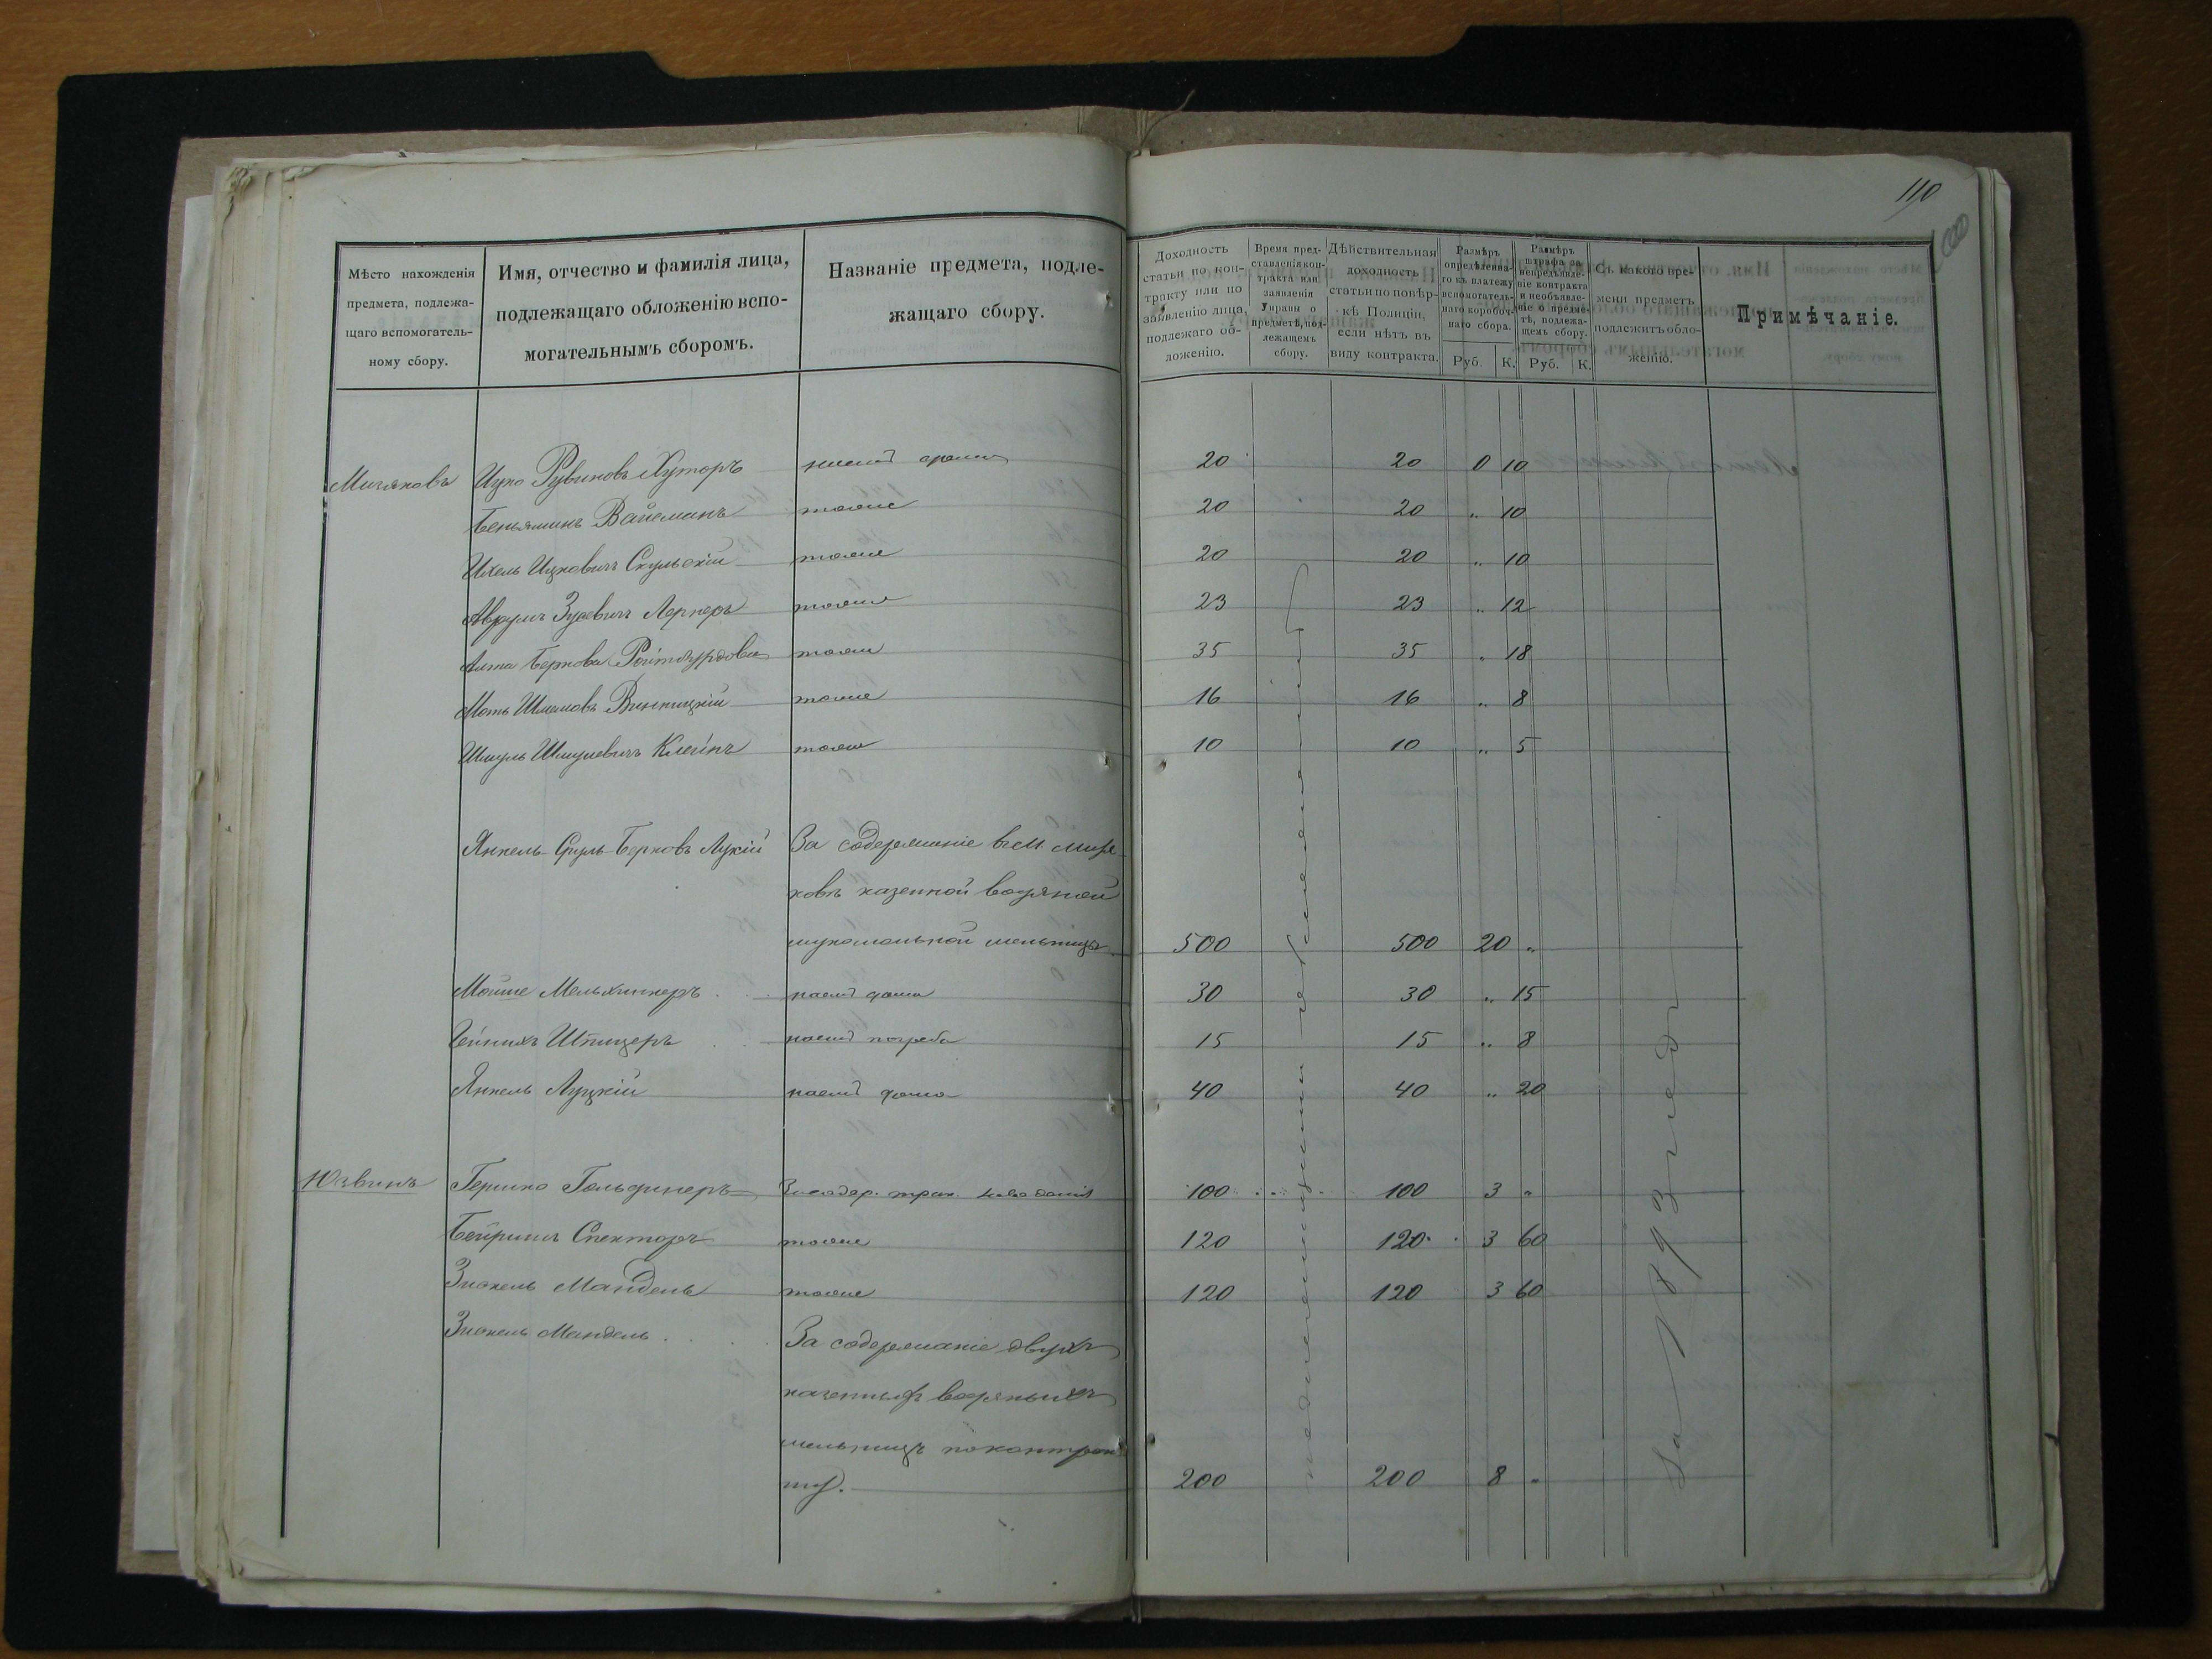 110
100
Мѣсто нахожденія
предмета, подлежа-
щаго вспомогатель-
ному сбору.
Имя, отчество и фамилія лица,
подлежащаго обложенію вспо-
могательнымъ сборомъ.
Названіе предмета, подле-
жащаго сбору.
Доходность
статьи по кон-
тракту или по
заявленію лица,
подлежаго об-
ложенію.
Время пред-
ставленія кон-
тракта или
заявленія
Управы о
предметѣ, под-
лежащемъ
сбору.
Дѣйствительная
доходность
статьи по повѣр-
кѣ Полиціи,
если нѣтъ въ
виду контракта.
Размѣръ
опредѣленна-
го къ платежу
вспомогатель-
наго коробоч-
наго сбора.
Руб. К.
Размѣръ
штрафа за
непредъявле-
ніе контракта
и необъявле-
ніе о предме-
тѣ, подлежа-
щемъ сбору.
Руб. К.
Съ какого вре-
мени предметъ
подлежитъ обло-
женію.
Примѣчаніе.
Мичяковъ Ицко Рувиновъ Хуторъ наемъ 20 20 0 10
Беньяминъ Вайсманъ тоже 20 20 " 10
Ихель Ицковичъ Скульскій тоже 20 20 " 10
Аврумъ Зусевичъ Лернеръ тоже 23 23 " 12
Беркова Ройтбурдова тоже 35 35 " 18
Моть Винницкій тоже 16 16 " 8
Шмуль Шмулевичъ Клейнъ тоже 10 10 " 5
Янкель-Сруль Берковъ Луцкій За содержаніе въ м.
ковѣ казенной водяной
мукомольной мельницы 500 500 20 "
Мойше Мельхинкеръ наемъ дома 30 30 " 15
Шпицеръ наемъ погреба 15 15 " 8
Янкель Луцкій наемъ дома 40 40 " 20
Юзвинъ Гершко Гольдинеръ За содер. трак. заведенія 100 100 3 "
Бейришъ Спекторъ тоже 120 120 3 60
Зисхель Мандель тоже 120 120 3 60
Зисхель Мандель За содержаніе двухъ
казенныхъ водяныхъ
мельницъ по контрак
ту. 200 200 8 "
За 1893 годъ